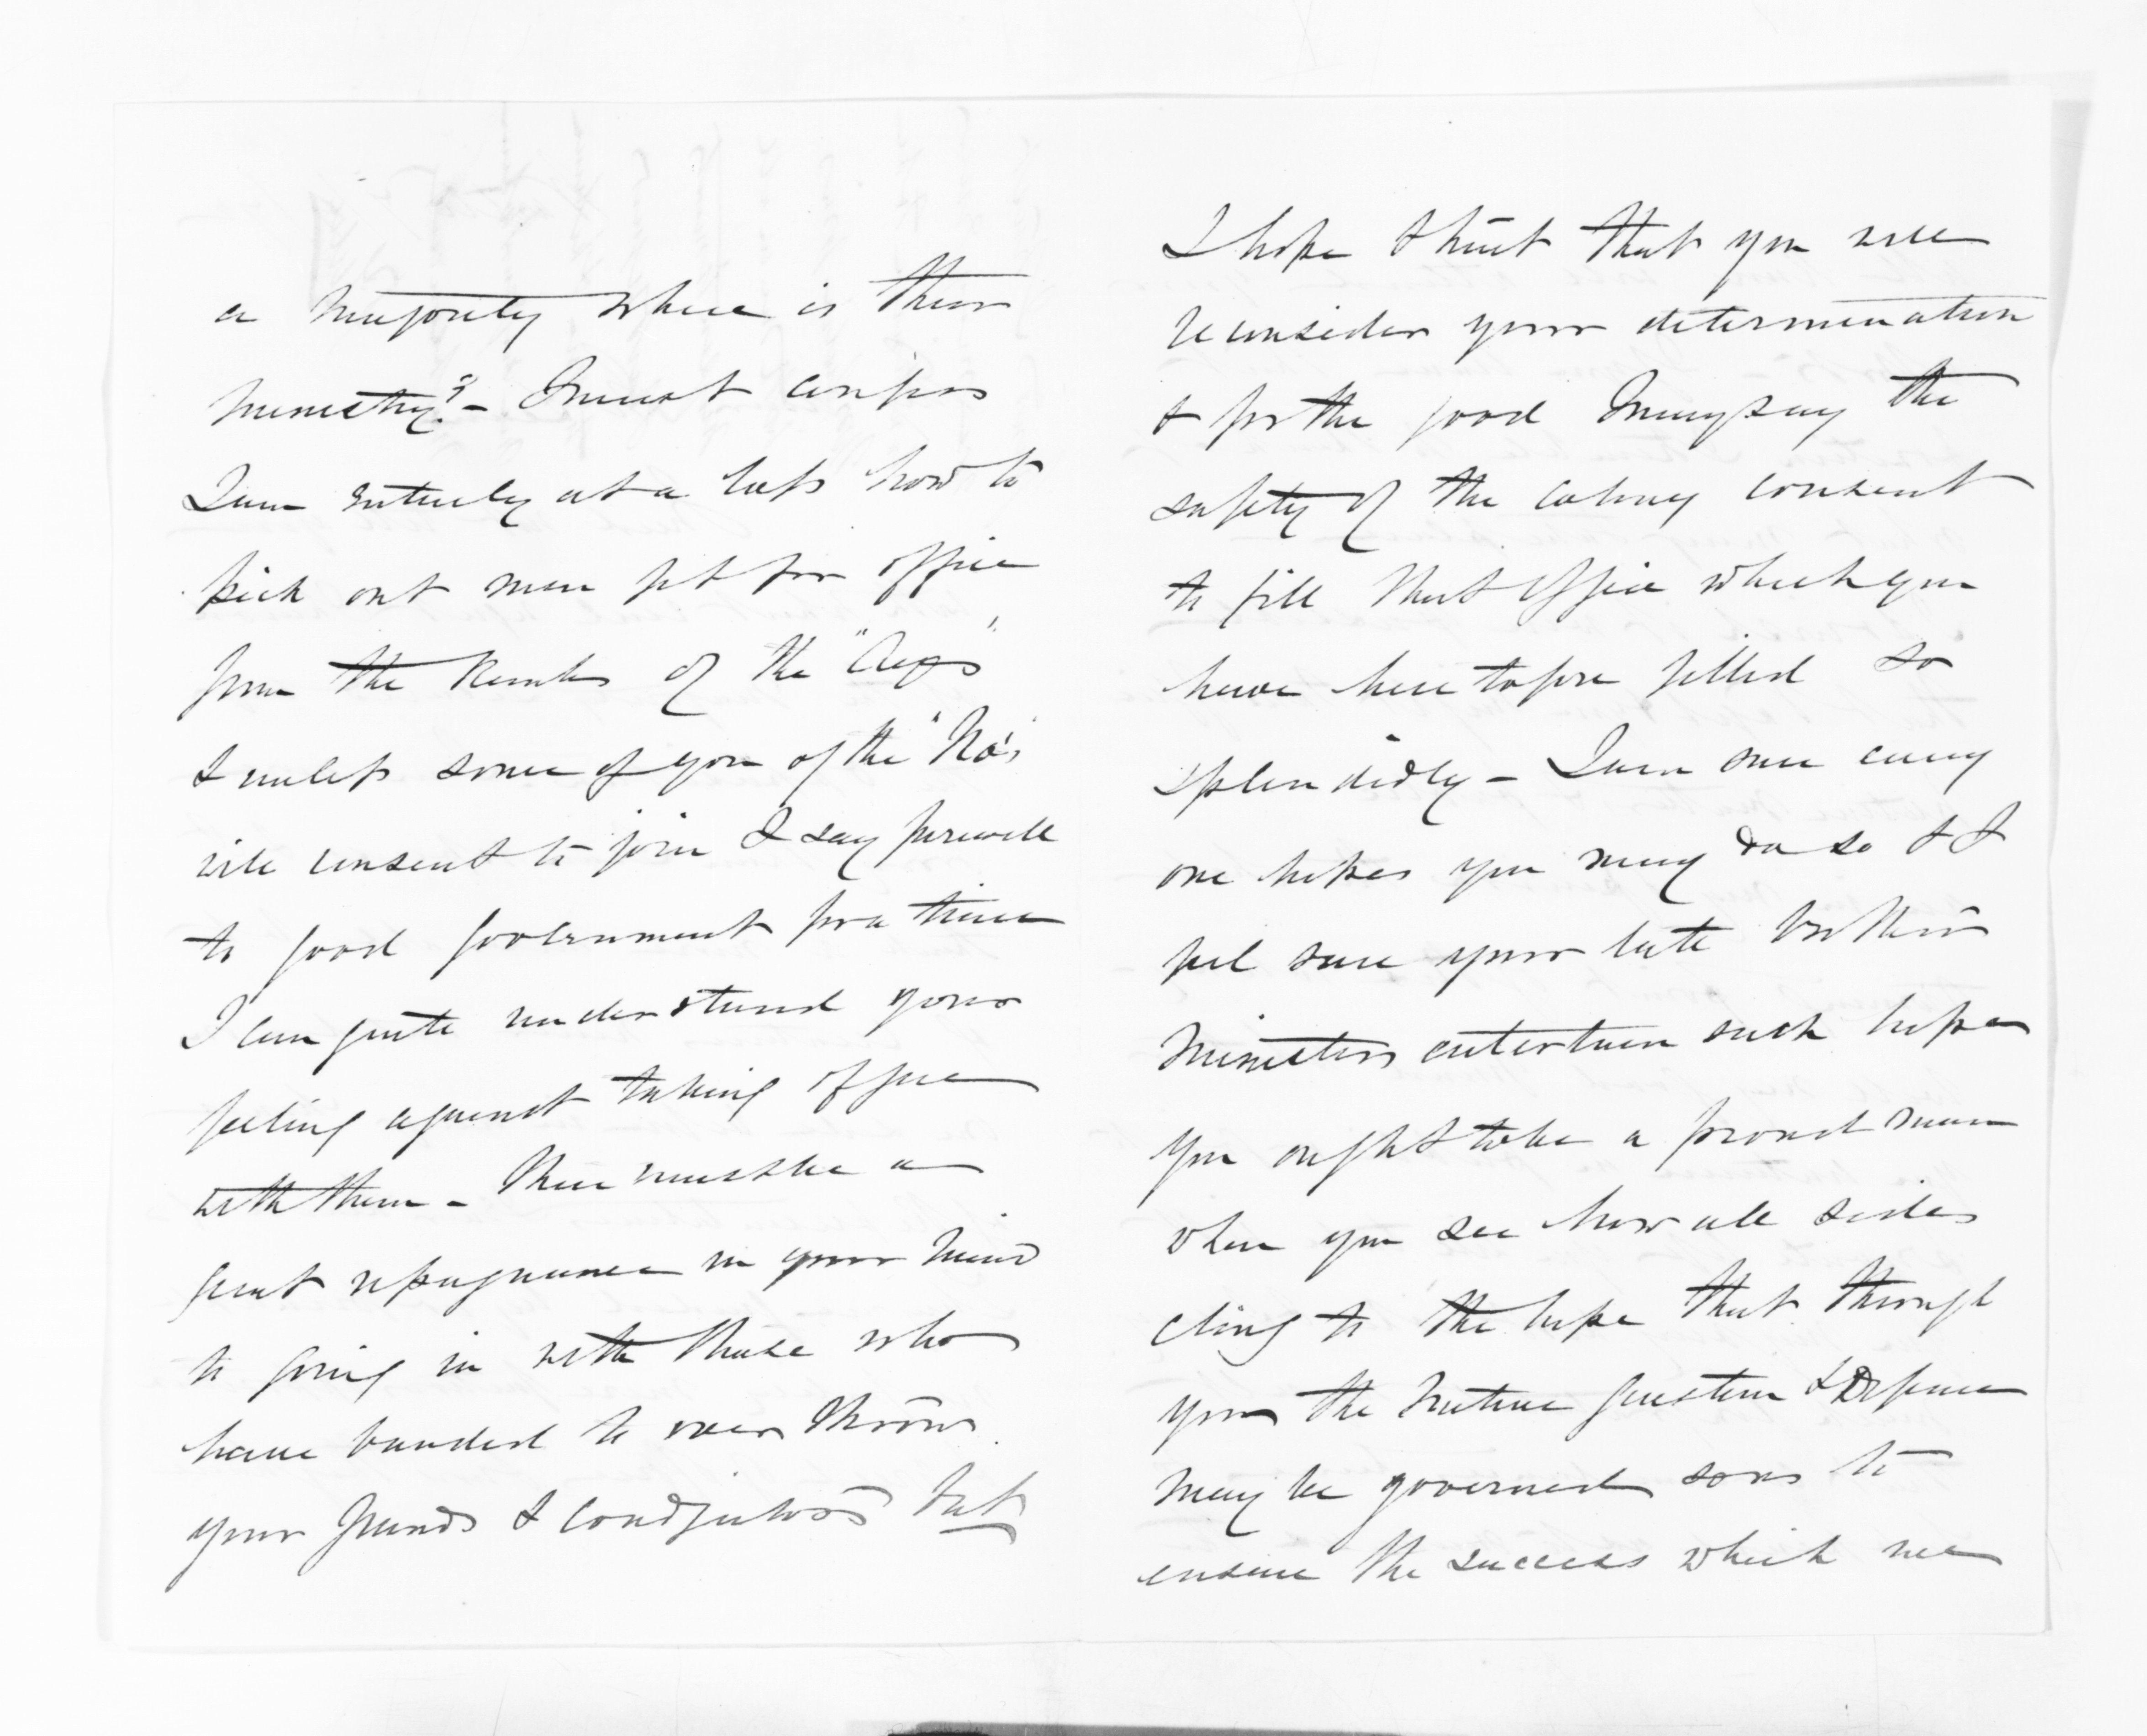 a majority where is their
Ministry? - I must confess
I am entirely at a loss how to
pick out men fit for office
from the ranks of the "Ayes"
& unless some of you of the "No's
will consent to join I say farewell
to good government for a time
I can quite understand your
feeling against taking office
with them - There must be a
great repugnance in your mind
to going in with those who
have banded to over throw
your friends & coadjutors but
I hope & trust that you will
reconsider your determination
& for the good I may say the
safety of the Colony consent
to fill that Office which you
have heretofore filled so
splendidly - I am sure every
one hopes you may do so & I
feel sure your late brother
Ministers entertain such hopes
You ought to be a proud man
when you see how all sides
cling to the hope that through
you the Native question & Defence
may be governed so as to
ensure the success which we